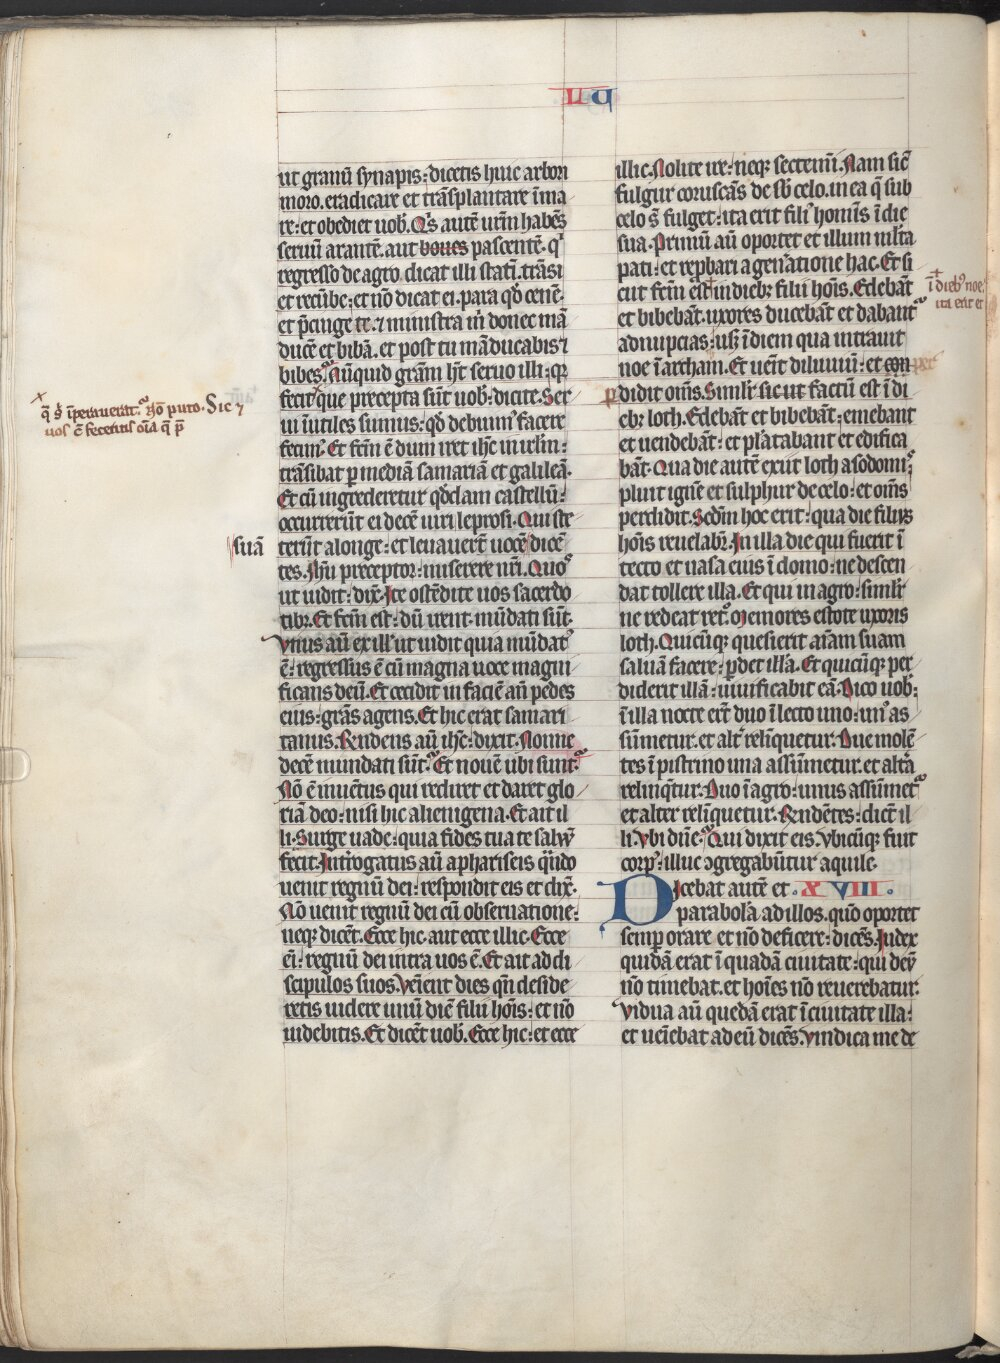 LU
ut granū synapis: dicetis huic arbori
moro. eradicare et trāsplantare ī ma
re: et obediet uob̄. Qͥs autē ur̄m habēs
seruū arantē. aut boues pascentē. qͥ
regresso de agro dicat illi statī. trāsi
et recūbe: et nō dicat ei. para qd̄ cenē.
et p̄cinge te. ⁊ ministra m̄ donec mā
ducē et bibā. et post tu māducabis ⁊
bibes. Nūquid grām h̄t seruo illi: qꝛ
fecit que precepta sūt uob̄: dicite. Ser
ui īutiles sumus: qd̄ debuimꝰ facere
fecimꝰ. Et fc̄m ē dum iret ih̄c in ierl̄m:
trāsibat ꝑ mediā samariā et galileā.
Et cū ingrederetur qd̄dam castellū:
occurrerūt ei decē uiri leprosi. Qui ste
terūt a longe: et leuauerūt uocē dicē
tes. Ih̄u preceptor: miserere nr̄i. Quos
ut uidit: dix̄. Ite ostēdite uos sacerdo
tibꝫ. Et fc̄m est: dū irent. mūdati sūt.
Vnus aū ex ill̄ ut uidit quia mūdatꝰ
ē: regressus ē cū magna uoce magni
ficans deū. Et cecidit in faciē an̄ pedes
eius: grās agens. Et hic erat samari
tanus. Rn̄dens aū ih̄c: dixit. Nonne
decē mundati sūt. Et nouē ubi sunt.
Nō ē inuētus qui rediret et daret glo
riā deo: nisi hic alienigena. Et ait il
li. Surge uade: quia fides tua te saluū
fecit. Int̄rogatus aū a phariseis qn̄do
uenit regnū dei: respondit eis et dix̄.
Nō uenit regnū dei cū obseruatione:
neqꝫ dicēt. Ecce hic. aut ecce illic. Ecce
ei̅: regnū dei intra uos ē. Et ait ad di
scipulos suos. Veient dies qn̄ deside
retis uidere unū diē filii hōis: et nō
uidebitis. Et dicēt uob̄. Ecce hic: et ecce
q̄ s̄ īperauerat. Nō puto. Sic ⁊
uos c̄ feceritis oīa q̄ p̄
suā
illic. Nolite ire: neqꝫ sectemī. Nam sic̄
fulgur coruscās de sb̄ celo. in ea q̄ sub
celo s̄ fulget: ita erit filiꝰ homīs ī die
sua. Primū aū oportet et illum ml̄ta
pati: et rep̄bari a gen̄atione hac. Et si
cut fc̄m est in diebꝫ filii hōis. Edebāt
et bibebāt. uxores ducebāt et dabant
ad nupcias: usqꝫ ī diem qua intrauit
noe ī archam. Et uēit diluuiū: et con
didit om̄s. Simil̄r sicut factū est ī di
ebꝫ loth. Edebāt et bibebāt: emebant
et uendebāt: et plātabant et edifica
bāt. Qua die autē exiit loth a sodomis
pluit ignē et sulphur de celo: et om̄s
perdidit. Scd̄m hoc erit: qua die filius
hōis reuelabꝛ. In illa die qui fuerit ī
tecto et uasa eius ī domo: ne descen
dat tollere illa. Et qui in agro: simil̄r
ne redeat retꝰ. Memores estote uxoris
loth. Quicūqꝫ quesierit aīam suam
saluā facere: ꝑdet illā. Et quicūqꝫ per
diderit illā: uiuificabit eā. Dico uob̄:
ī illa nocte er̄t duo ī lecto uno: unꝰ as
sūmetur. et alt̄ relīquetur. Due molē
tes ī pistrino una assūmetur. et alt̄a
relinq̄tur. Duo ī agro: unus assūmet̄
et alter relīquetur. Rn̄dētes: dicūt il
li. Vbi dn̄e. Qui dixit eis. Vbicūqꝫ fuit
corpꝰ: illuc ꝯgregabūtur aquile.
Dicebat autē et XVIII.
parabolā ad illos. qn̄o oportet
semꝑ orare et nō deficere: dicēs. Iudex
quidā erat ī quadā ciuitate: qui deū
nō timebat. et hoīes nō reuerebatur.
Vidua aū quedā erat ī ciuitate illa:
et ueiebat ad eū dicēs. Vindica me de
ī diebꝰ noe.
ita erit et